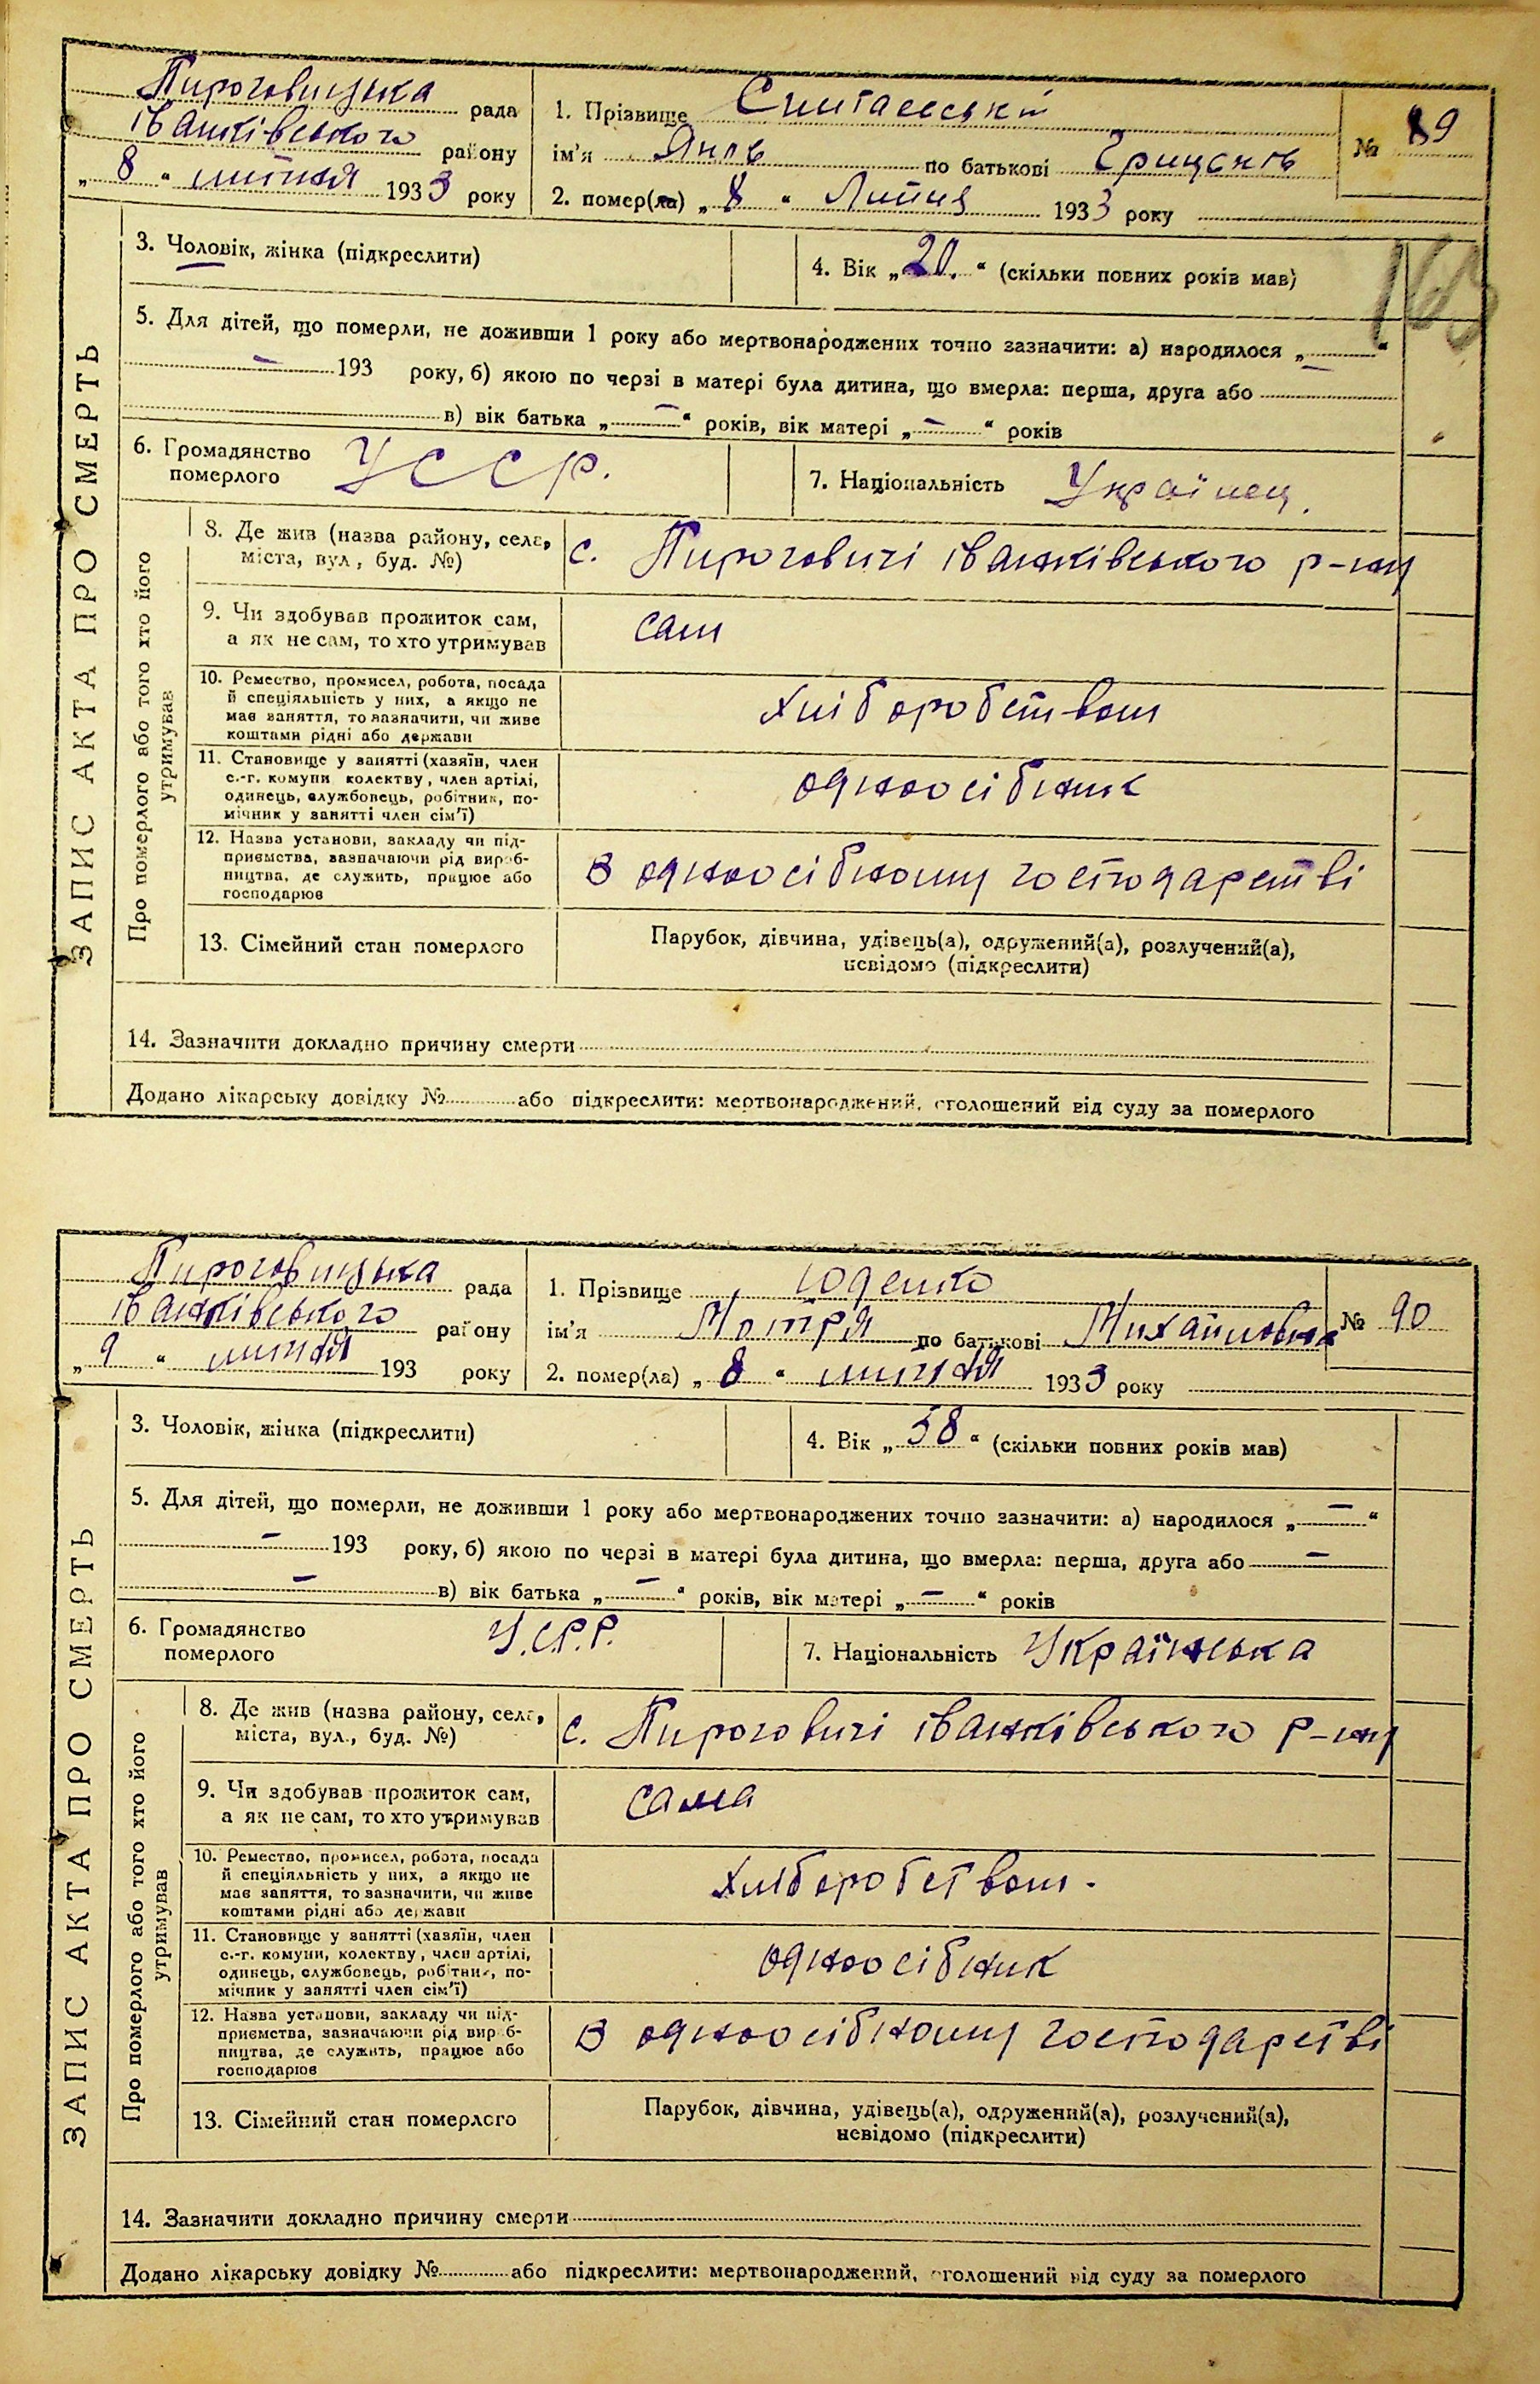 ЗАПИС АКТА ПРО СМЕРТЬ
Пироговицька рада
іванківського району
„ 8 “ липня 1933 року
1. Прізвище
ім'я Яків по батькові Грицьків
2. помер(ла) „ 8 “ Липня 1933 року
№ 89
163
3. Чоловік, жінка (підкреслити)
4. Вік „ 20. “ (скільки повних років мав)
5. Для дітей, що померли, не доживши 1 року або мертвонароджених точно зазначити: а) народилося „ — “
— 193 року, б) якою по черзі в матері була дитина, що вмерла: перша, друга або
в) вік батька „ — “ років, вік матері „ — “ років
6. Громадянство
померлого УССР.
7. Національність Українец.
Про померлого або того хто його
утримував
8. Де жив (назва району, села,
міста, вул., буд. №)
с. Пироговичі іванківського р-ну
9. Чи здобував прожиток сам,
а як не сам, то хто утримував
сам
10. Ремество, промисел, робота, посада
й спеціяльність у них, а якщо не
мав заняття, то зазначити, чи живе
коштами рідні або держави
хліборобством
11. Становище у занятті (хазяїн, член
с.-г. комуни колектву, член артілі,
одинець, службовець, робітник, по-
мічник у занятті член сім'ї)
одноосібник
12. Назва установи, закладу чи під-
приємства, зазначаючи рід вироб-
ництва, де служить, працює або
господарює
В одноосібному господарстві
13. Сімейний стан померлого
Парубок, дівчина, удівець(а), одружений(а), розлучений(а),
невідомо (підкреслити)
14. Зазначити докладно причину смерти
Додано лікарську довідку № або підкреслити: мертвонароджений, оголошений від суду за померлого
ЗАПИС АКТА ПРО СМЕРТЬ
Пироговицька рада
іванківського району
„ 9 “ липня 193 року
1. Прізвище Юденко
ім'я Мотря по батькові Михайловна
2. помер(ла) „ 8 “ липня 1933 року
№ 90
3. Чоловік, жінка (підкреслити)
4. Вік „ 58 “ (скільки повних років мав)
5. Для дітей, що померли, не доживши 1 року або мертвонароджених точно зазначити: а) народилося „ — “
— 193 року, б) якою по черзі в матері була дитина, що вмерла: перша, друга або —
— в) вік батька „ — “ років, вік матері „ — “ років
6. Громадянство
померлого У.С.Р.Р.
7. Національність Українська
Про померлого або того хто його
утримував
8. Де жив (назва району, села,
міста, вул., буд. №)
с. Пироговичі іванківського р-ну
9. Чи здобував прожиток сам,
а як не сам, то хто утримував
сама
10. Ремество, промисел, робота, посада
й спеціяльність у них, а якщо не
мав заняття, то зазначити, чи живе
коштами рідні або держави
хліборобством.
11. Становище у занятті (хазяїн, член
с.-г. комуни, колектву, член артілі,
одинець, службовець, робітник, по-
мічник у занятті член сім'ї)
одноосібник
12. Назва установи, закладу чи під-
приємства, зазначаючи рід вироб-
ництва, де служить, працює або
господарює
В одноосібному господарстві
13. Сімейний стан померлого
Парубок, дівчина, удівець(а), одружений(а), розлучений(а),
невідомо (підкреслити)
14. Зазначити докладно причину смерти
Додано лікарську довідку № або підкреслити: мертвонароджений, оголошений від суду за померлого